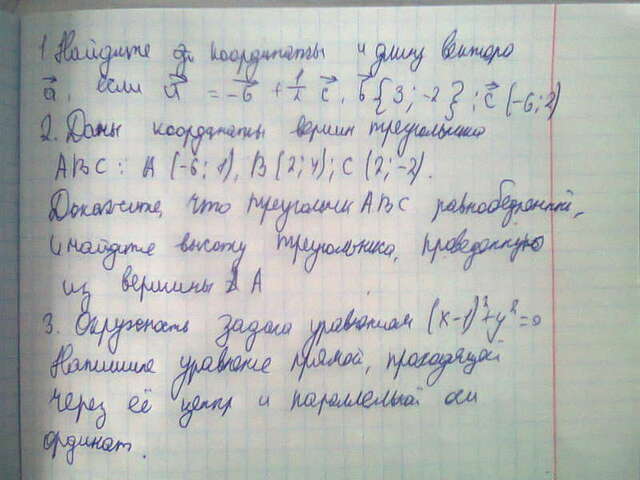 1 Найдите координаты и длину вектора
a⃗, если a⃗ = -b⃗ + 1/2 c⃗, b⃗ {3; -2}; c⃗ (-6; 2)
2. Даны координаты вершин треугольника
ABC: A (-6; 1), B (2; 4); C (2; -2).
Докажите, что треугольник ABC равнобедренный,
и найдите высоту треугольника, проведенную
из вершины A
3. Окружность задана уравнением (x-1)²+y²=0
Напишите уравнение прямой, проходящей
через её центр и параллельной оси
ординат.